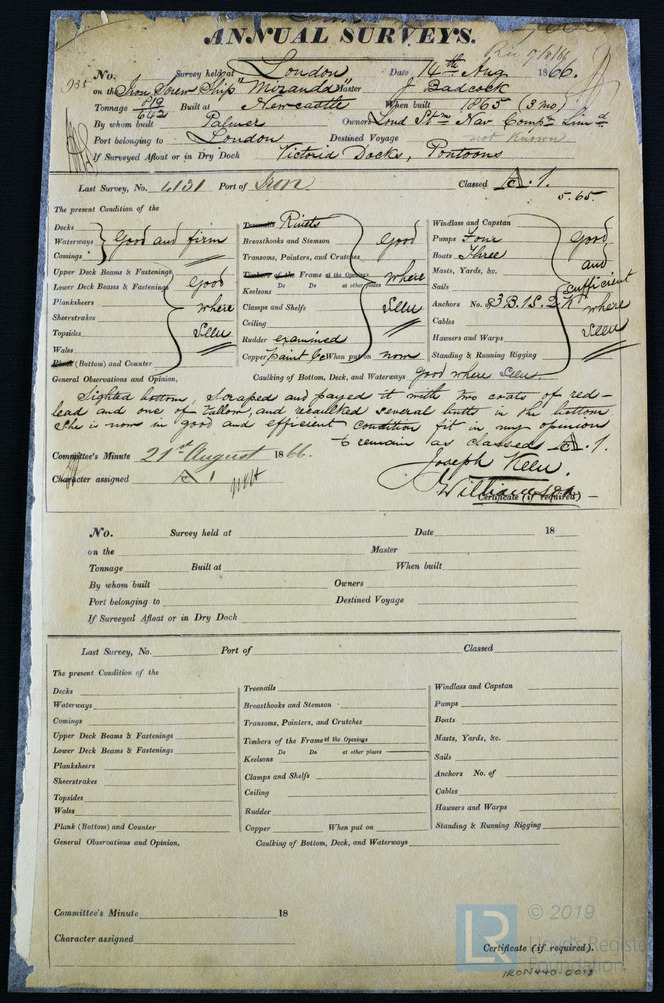 ANNUAL SURVEYS.
No. Survey held at London Date 14th Aug 1866.
on the Iron Screw Ship "Miranda" Master J Badcock
Tonnage 819 642 Built at Newcastle When built 1865 (3 mo)
By whom built Palmer Owners Lond Stm Nav Compy Limd
Port belonging to London Destined Voyage not known
If Surveyed Afloat or in Dry Dock Victoria Docks, Pontoons
Last Survey, No. 4131 Port of Iron Classed A 1.
5.65
The present Condition of the
Decks
Waterways Good and firm
Comings
Upper Deck Beams & Fastenings
Lower Deck Beams & Fastenings Good
Planksheers where
Sheerstrakes
Topsides Seen
Wales
Plank (Bottom) and Counter
Treenails Rivets
Breasthooks and Stemson Good
Transoms, Pointers, and Crutches
Timbers of the Frame at the Openings where
Do Do at other places
Keelsons
Clamps and Shelfs Seen
Ceiling
Rudder examined
Copper paint &c When put on now
Windlass and Capstan
Pumps Four Good
Boats Three and
Masts, Yards, &c.
Sails sufficient
Anchors No. of 3B.1S.2K where
Cables
Hawsers and Warps Seen
Standing & Running Rigging
General Observations and Opinion, Caulking of Bottom, Deck, and Waterways Good where Seen
Sighted bottom, scraped and payed it with two coats of red-
lead and one of Tallow, and recaulked several butts in the bottom
She is now in good and efficient condition fit in my opinion
to remain as classed A 1.
Committee's Minute 21st August 1866.
Joseph Keen.
Character assigned A 1
Certificate (if required)
No. Survey held at Date 18
on the Master
Tonnage Built at When built
By whom built Owners
Port belonging to Destined Voyage
If Surveyed Afloat or in Dry Dock
Last Survey, No. Port of Classed
The present Condition of the
Decks
Waterways
Comings
Upper Deck Beams & Fastenings
Lower Deck Beams & Fastenings
Planksheers
Sheerstrakes
Topsides
Wales
Plank (Bottom) and Counter
Treenails
Breasthooks and Stemson
Transoms, Pointers, and Crutches
Timbers of the Frame at the Openings
Do Do at other places
Keelsons
Clamps and Shelfs
Ceiling
Rudder
Copper When put on
Windlass and Capstan
Pumps
Boats
Masts, Yards, &c.
Sails
Anchors No. of
Cables
Hawsers and Warps
Standing & Running Rigging
General Observations and Opinion, Caulking of Bottom, Deck, and Waterways
Committee's Minute 18
Character assigned
Certificate (if required).
LR
© 2019
Lloyd's Register
Foundation
IRON440-0018